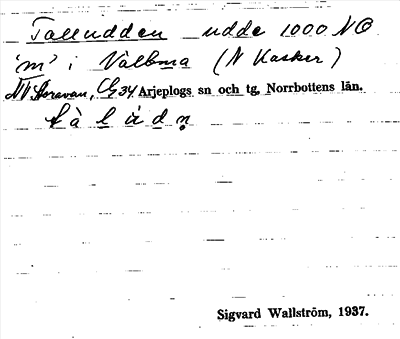 Talludden udde 1000 NO
'm' i Välbma (N Kasker)
NV Storavan, Cg 34 Arjeplogs sn och tg, Norrbottens län.
t à l ù d n
Sigvard Wallström, 1937.